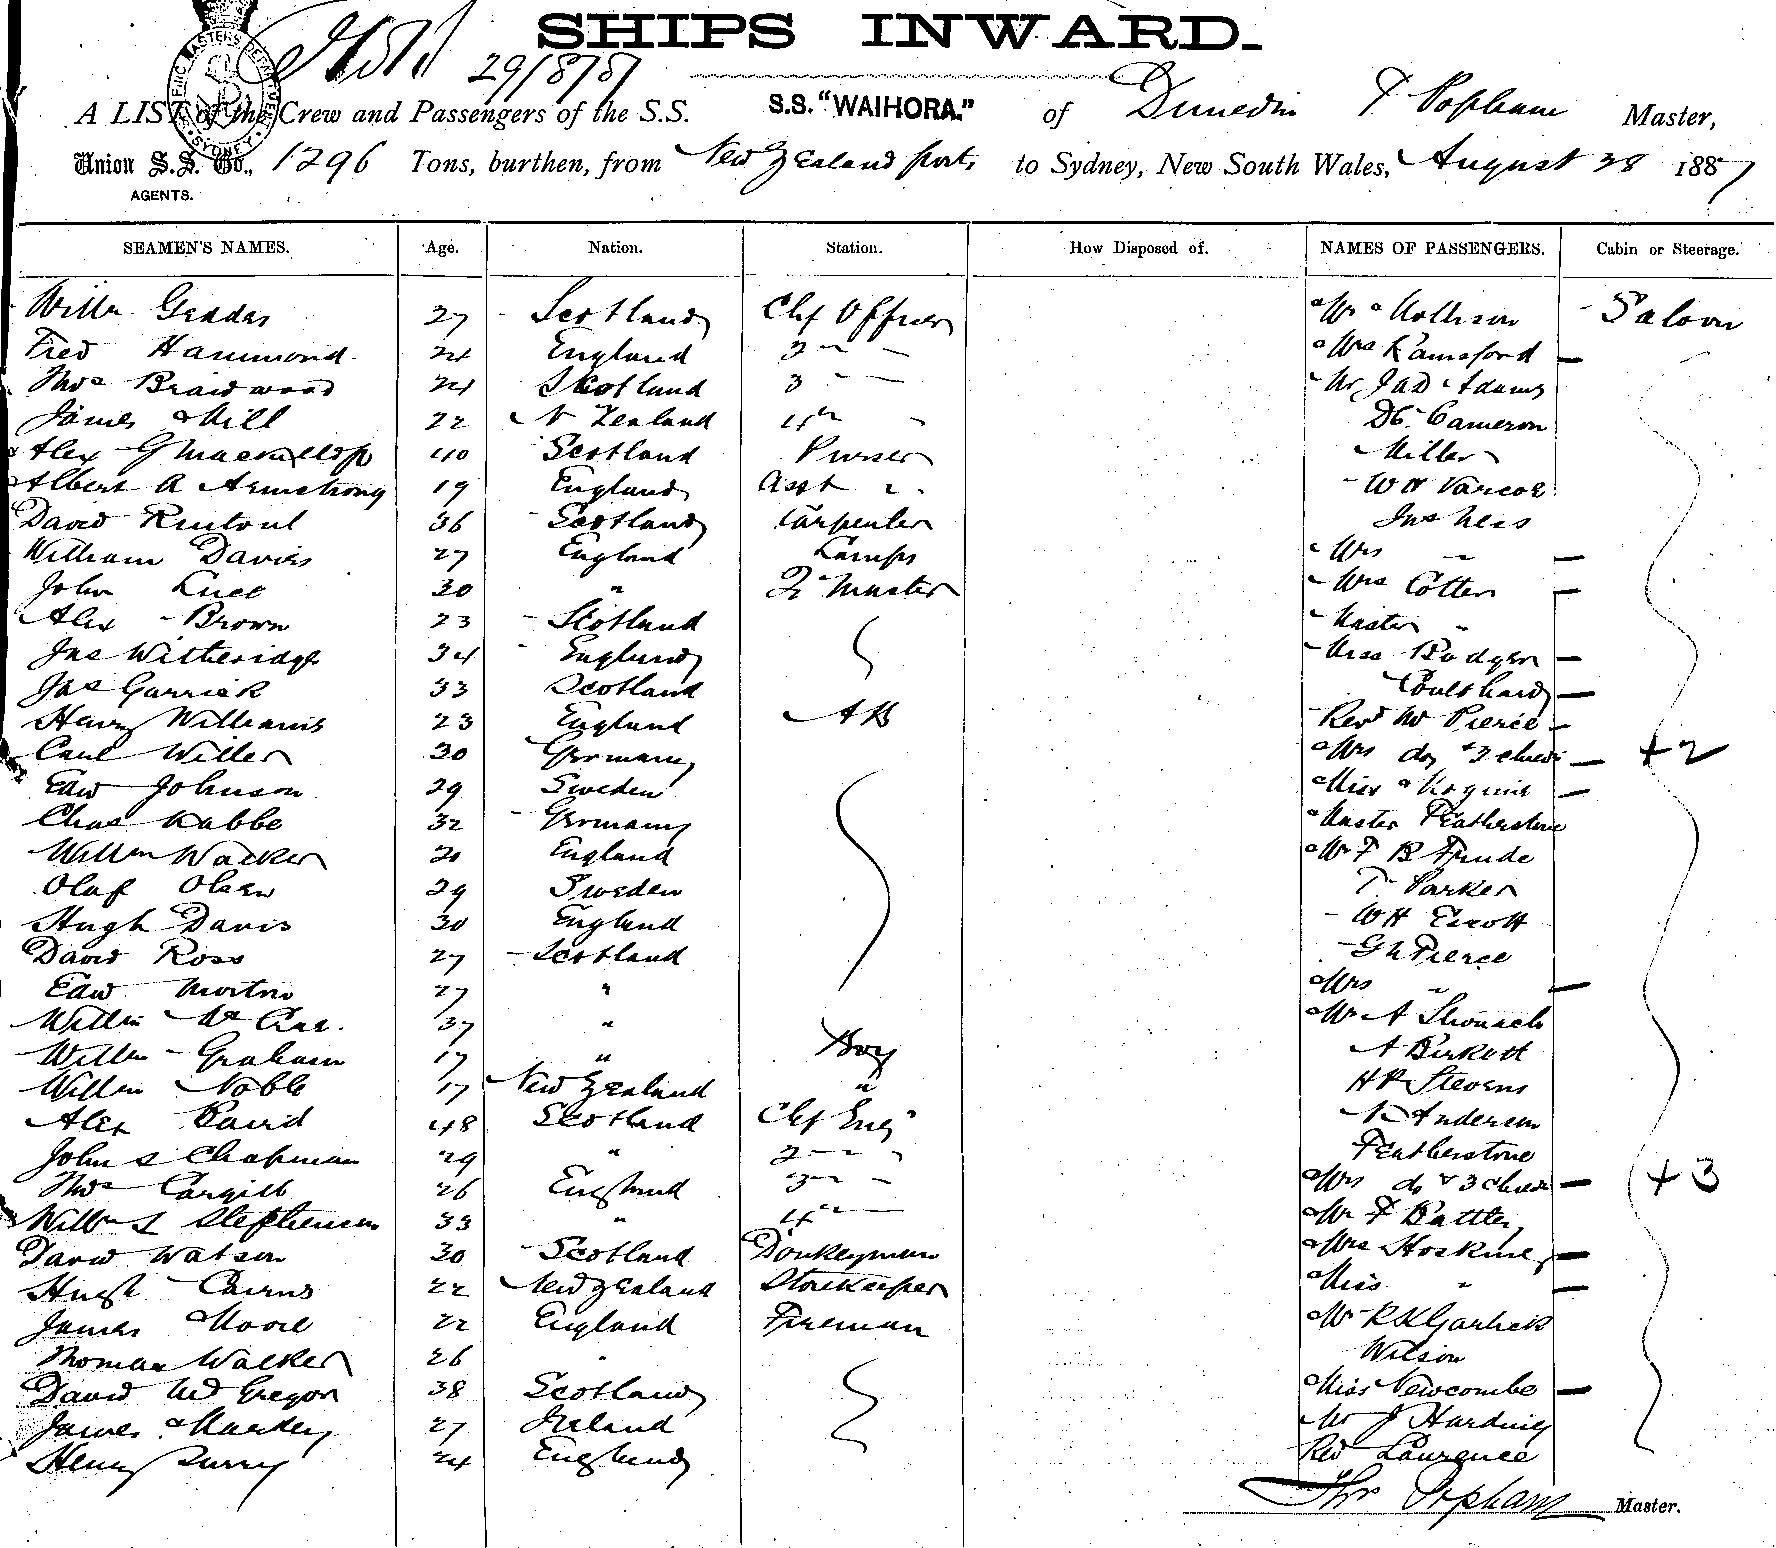 SHIPS INWARD.
29/8/87
A LIST of the Crew and Passengers of the S.S. S.S. "WAIHORA." of Dunedin T Popham Master,
Union S.S. Co., 1296 Tons, burthen, from New Zealand ports to Sydney, New South Wales, August 28 1887
AGENTS.
SEAMEN'S NAMES. Age. Nation. Station. How Disposed of. NAMES OF PASSENGERS. Cabin or Steerage.
Willm Geddes 27 Scotland Chf Officer Mr Saloon
Fred Hammond 24 England 2 " Mrs Rainsford
Thos Braidwood 24 Scotland 3 " Mr Jas Adams
James Mill 22 N Zealand 4th " Cameron
Alex G Mackellop 40 Scotland Purser Miller
Albert A Armstrong 19 England Asst " W H Varcoe
David Rintoul 36 Scotland Carpenter Jno
William Davies 27 England Lamps Mrs "
John Luce 30 " Qr Master Mrs Cotter
Alex Brown 23 Scotland Master "
Jas Witheridge 34 England Miss Rodgers
Jas Garrick 33 Scotland Coulthard
Henry Williams 23 England AB Revd Mr Pierce
Carl Willer 30 Germany Mrs do + 2 children +2
Edw Johnson 29 Sweden Miss
Chas Kabbe 32 Germany Master Featherstone
Willm Walker 20 England Mr F B Frude
Olaf Olsen 29 Sweden T Parker
Hugh Davis 30 England W H Errott
David Ross 27 Scotland G H Pierce
Edw Morton 27 " Mrs "
Willm 37 " Mr A
Willm Graham 17 " Boy A Birkett
Willm Noble 17 New Zealand " H R Stevens
Alex Baird 48 Scotland Chf Engr N Anderson
John S Chapman 29 " 2 " Featherstone
Thos Cargill 26 England 3 " Mrs do + 3 children +3
Willm S Stephenson 33 " 4th " Mr F Battley
David Watson 30 Scotland Donkeyman Mrs Hoskins
Hugh Cairns 22 New Zealand Storekeeper Miss "
James Moore 22 England Fireman Mr R K Garlick
Thomas Walker 26 " Wilson
David McGregor 38 Scotland Miss Newcombe
James Mackey 27 Ireland Mr J Harding
Henry Surry 24 England Rev Laurence
Thos Popham Master.